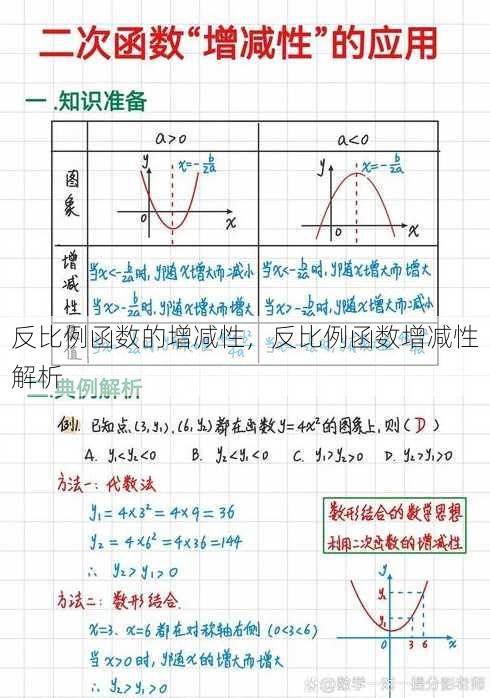 二次函数“增减性”的应用
一.知识准备
a>0
a<0
图象
y
x=-b/2a
0
x
y
x=-b/2a
0
x
增减性
当x<-b/2a时,y随x增大而减小
当x<-b/2a时,y随x增大而增大
当x>-b/2a时,y随x增大而增大
当x>-b/2a时,y随x增大而减小
反比例函数的增减性，反比例函数增减性
解析
二.典例解析
例1. 已知点(3,y₁),(6,y₂)都在函数y=4x²的图象上,则( D )
A. y₁<y₂<0 B. y₂<y₁<0 C. y₁>y₂>0 D. y₂>y₁>0
方法一:代数法
y₁=4×3²=4×9=36
y₂=4×6²=4×36=144
∴ y₂>y₁>0
数形结合的数学思想
利用二次函数的增减性
方法二:数形结合.
x=3、x=6都在对称轴右侧(0<3<6)
当x>0时,y随x的增大而增大
∴ y₂>y₁>0
y
y₂
y₁
0
3
6
x
@数学一对一提分彭老师